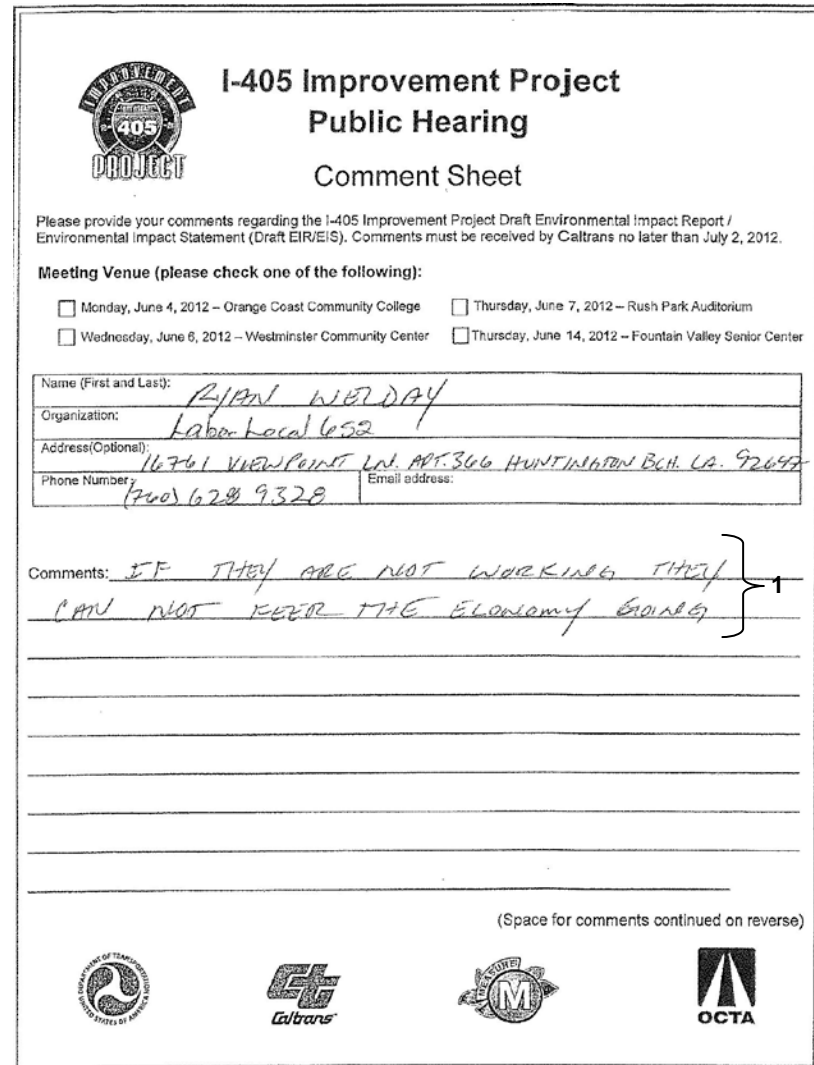 IMPROVEMENT
405
PROJECT
I-405 Improvement Project
Public Hearing
Comment Sheet
Please provide your comments regarding the I-405 Improvement Project Draft Environmental Impact Report /
Environmental Impact Statement (Draft EIR/EIS). Comments must be received by Caltrans no later than July 2, 2012.
Meeting Venue (please check one of the following):
Monday, June 4, 2012 – Orange Coast Community College
Thursday, June 7, 2012 – Rush Park Auditorium
Wednesday, June 6, 2012 – Westminster Community Center
Thursday, June 14, 2012 – Fountain Valley Senior Center
Name (First and Last): RYAN WELDAY
Organization: Labor Local 652
Address(Optional): 16761 VIEWPOINT LN. APT. 366 HUNTINGTON BCH. CA. 92647
Phone Number: (760) 628 9328
Email address:
Comments: IF THEY ARE NOT WORKING THEY
CAN NOT KEEP THE ECONOMY GOING
1
(Space for comments continued on reverse)
DEPARTMENT OF TRANSPORTATION
UNITED STATES OF AMERICA
Caltrans
MEASURE
M
OCTA